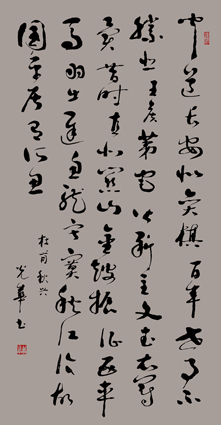 聞道長安似弈棋百年世事不
勝悲王侯第宅皆新主文武衣冠
異昔時直北關山金鼓振征西車
馬羽書遲魚龍寂寞秋江冷故
國平居有所思
杜甫秋兴
光華書